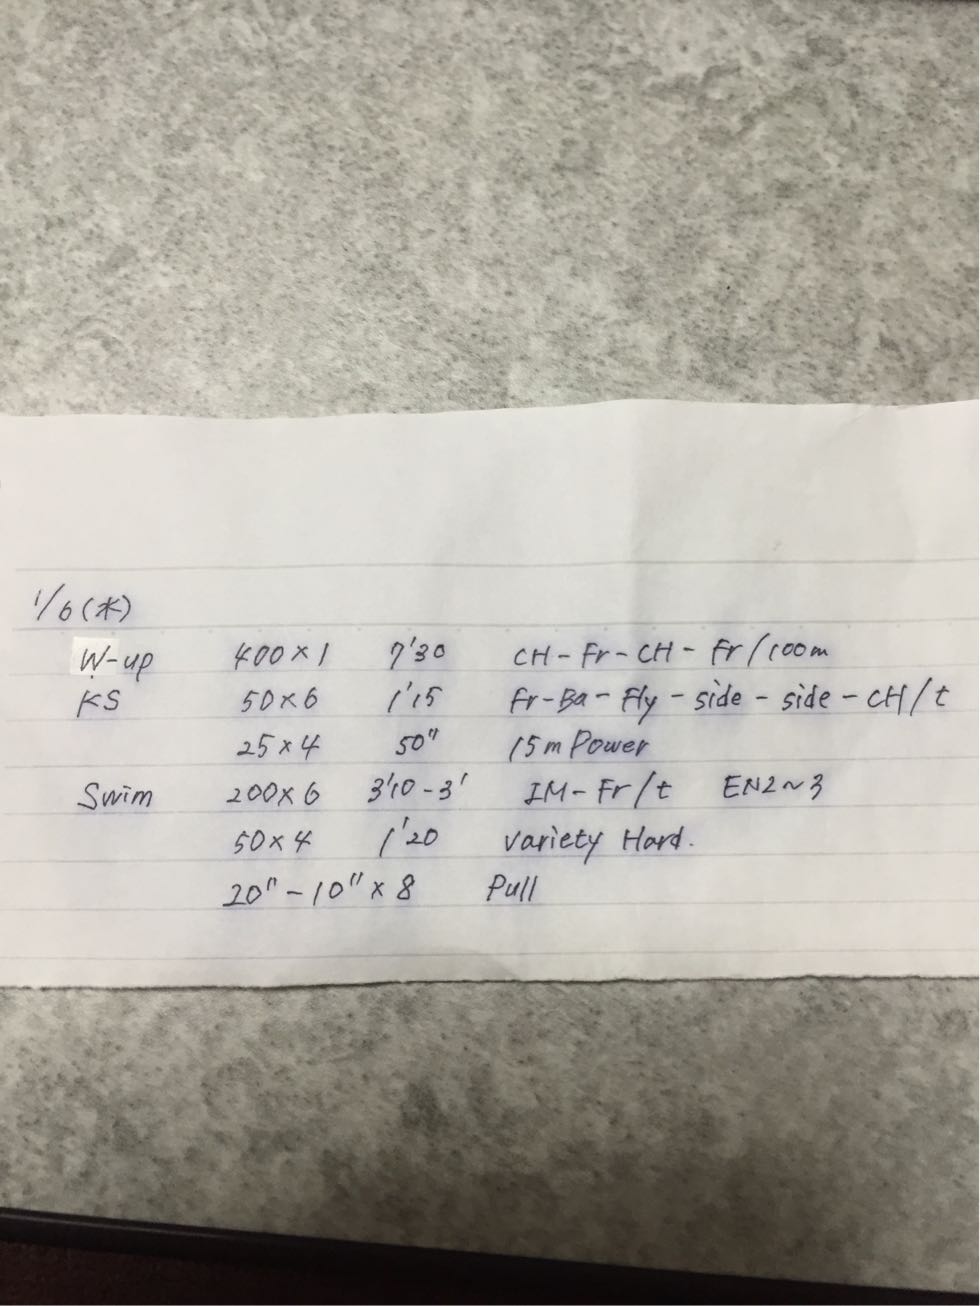 1/6(水)
W-up 400×1 7'30 CH-Fr-CH-Fr/100m
KS 50×6 1'15 Fr-Ba-Fly-side-side-CH/t
25×4 50" 15m Power
Swim 200×6 3'10-3' IM-Fr/t EN2~3
50×4 1'20 variety Hard.
20"-10"×8 Pull